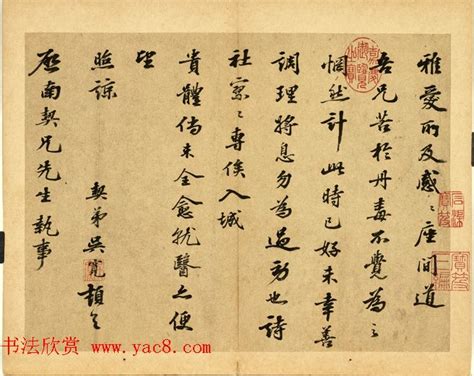 雅愛所及感〻座間道
吾兄苦於丹毒不覺為之
惘然計此時已好未幸善
調理將息勿為過動也詩
社寥〻專俟入城
貴體倘未全愈就醫亦便
望
照諒
契弟吳寬頓首
啟南契兄先生執事
书法欣赏 www.yac8.com